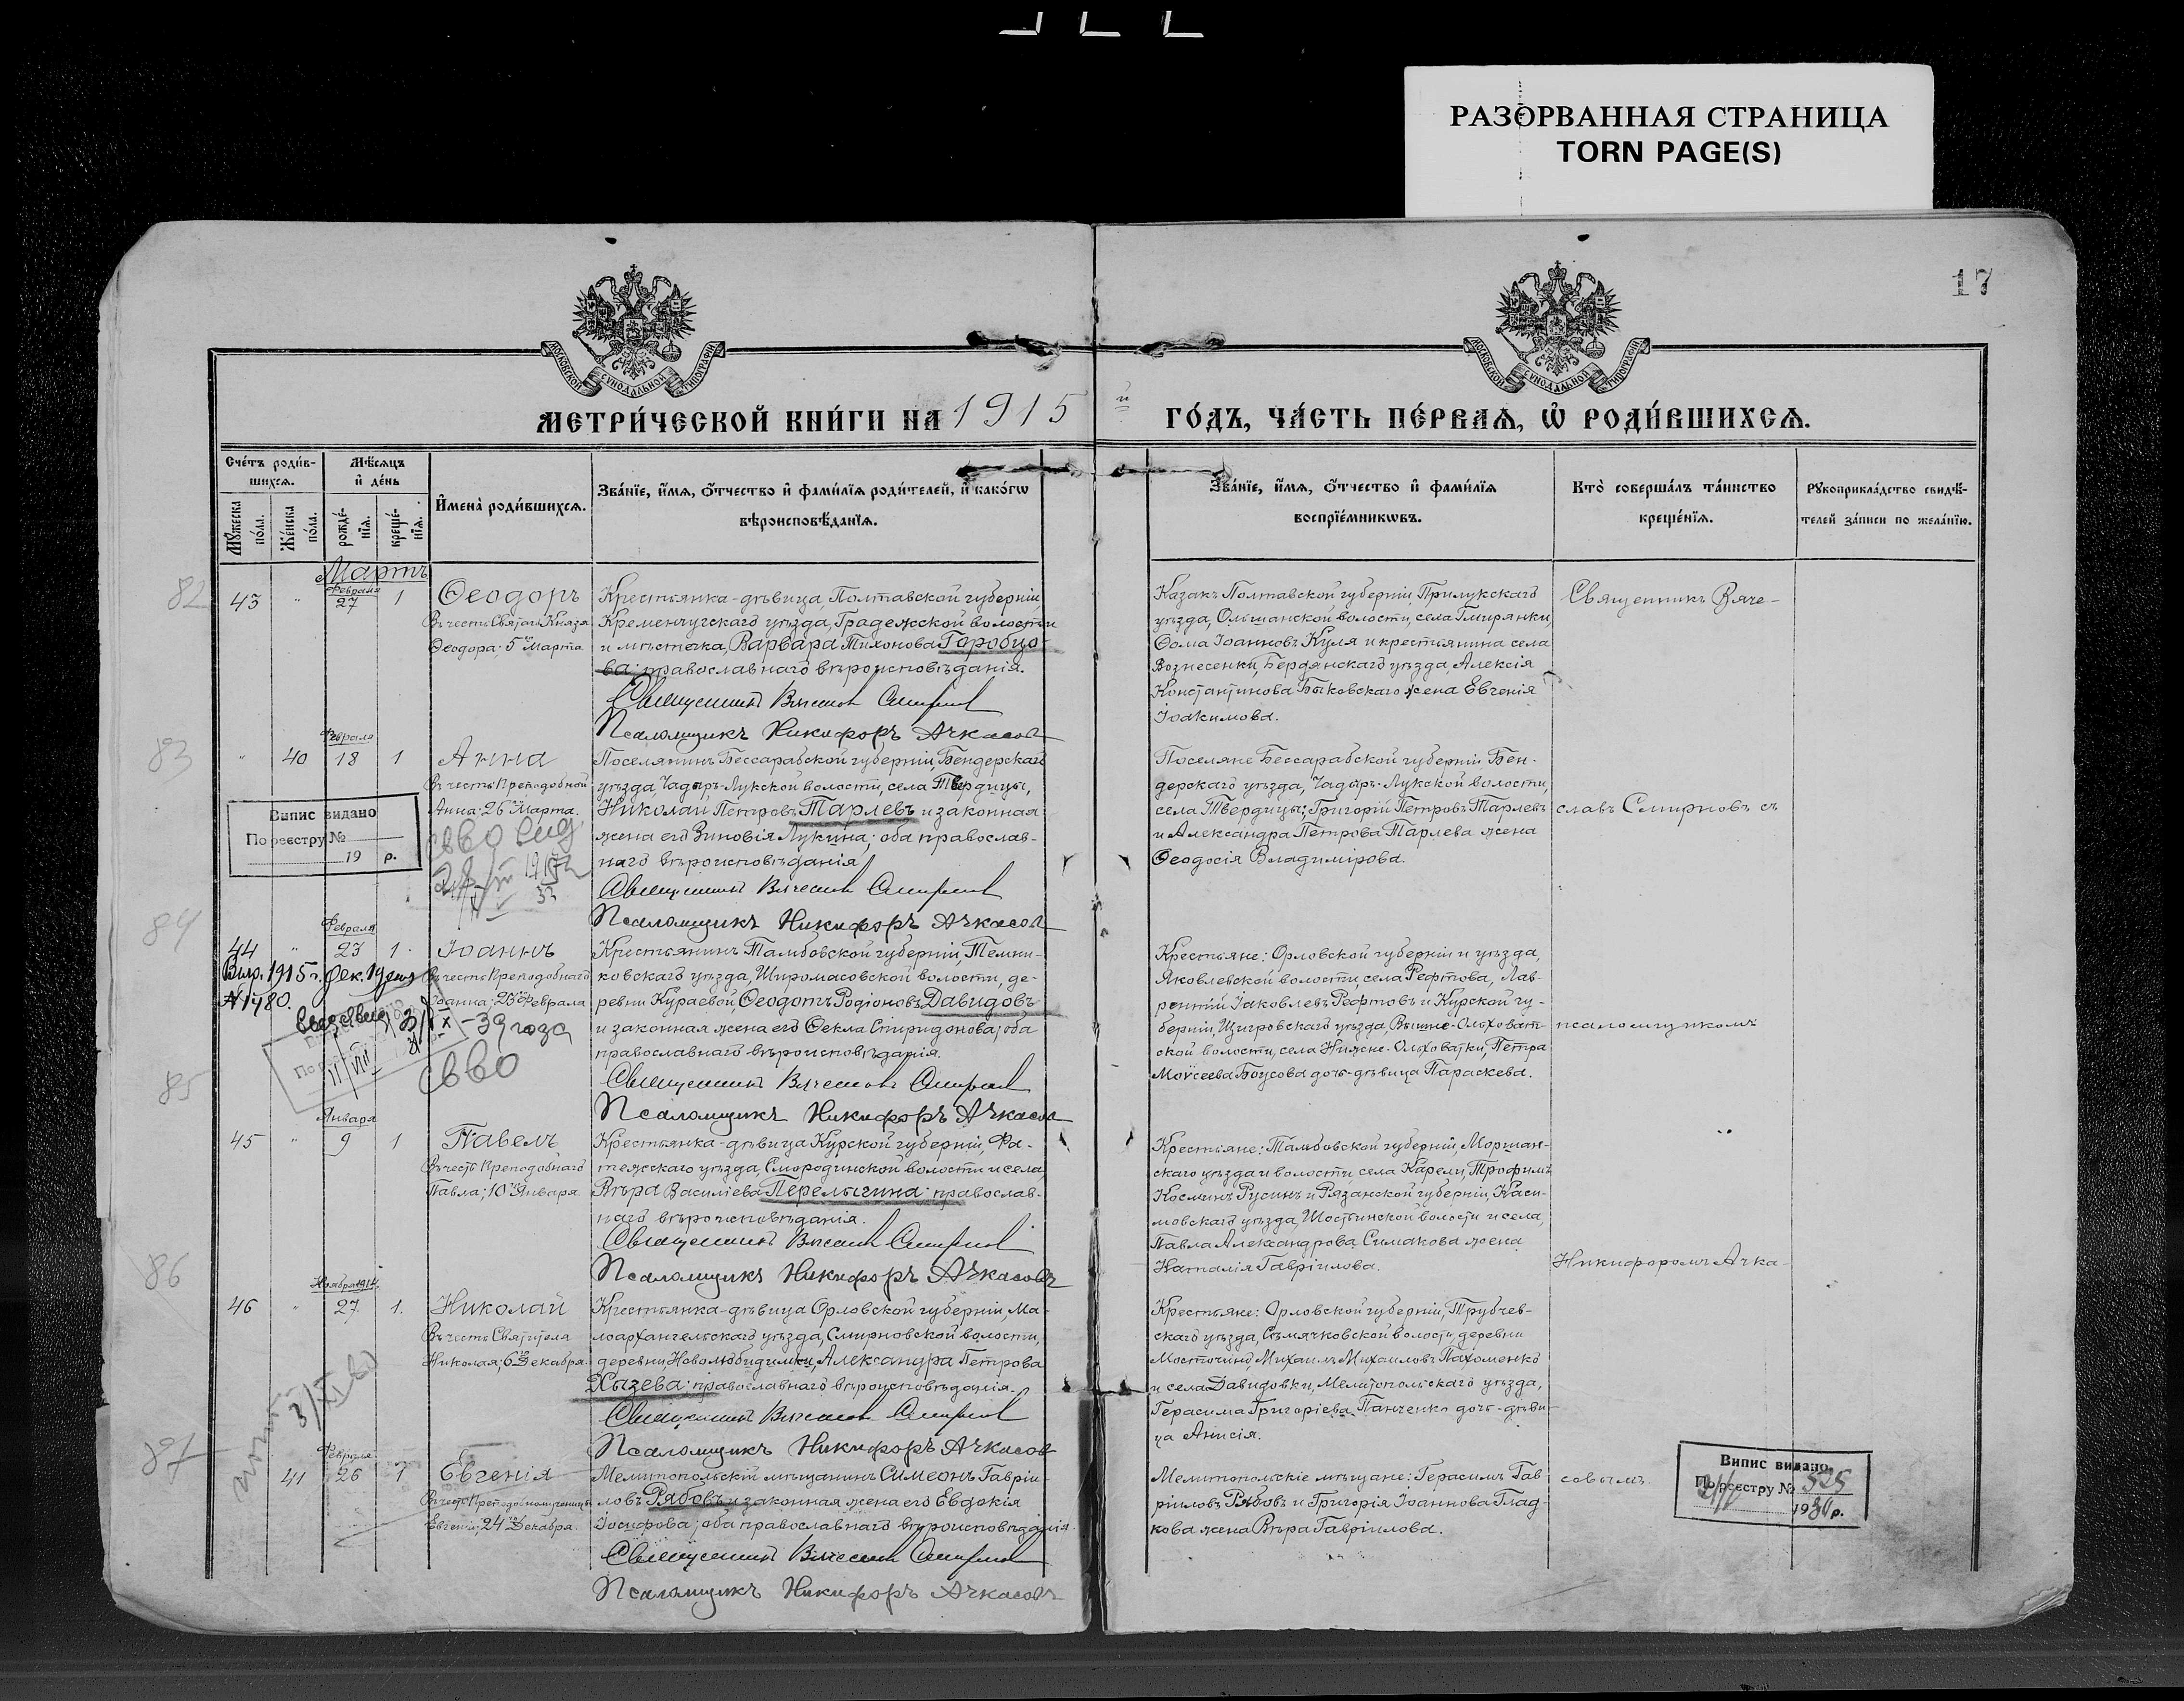 РАЗОРВАННАЯ СТРАНИЦА
TORN PAGE(S)
17
МОСКОВСКОЙ СУНОДАЛЬНОЙ ТИПОГРАФІИ
МОСКОВСКОЙ СУНОДАЛЬНОЙ ТИПОГРАФІИ
МЕТРИ́ЧЕСКОЙ КНИ́ГИ НА 1915 й ГО́ДЪ, ЧА́СТЬ ПЕ́РВАѦ, Ѡ҆ РОДИ́ВШИХСѦ.
Сче́тъ роди́в-
шихсѧ.
Мѣ́сѧцъ
и҆ де́нь
Мꙋ́жеска по́ла.
Же́нска по́ла.
рожде́-
нїѧ.
креще́-
нїѧ.
И҆мена̀ роди́вшихсѧ.
Зва́нїе, и҆́мѧ, ѻ҆́тчество и҆ фами́лїѧ роди́телей, и҆ како́гѡ
вѣроисповѣ́данїѧ.
Зва́нїе, и҆́мѧ, ѻ҆́тчество и҆ фами́лїѧ
воспрїе́мникѡвъ.
Кто̀ соверша́лъ та́инство
креще́нїѧ.
Рꙋкоприкла́дство свидѣ́-
телей за́писи по жела́нїю.
Мартъ
82
43 " Февраля 27 1 Ѳеодоръ
Въ честь Святаго Князя
Ѳеодора; 5го Марта
Крестьянка-дѣвица, Полтавской губерніи,
Кременчугскаго уѣзда, Градежской волости
и мѣстечка, Варвара Тихонова Горобцо-
ва; православнаго вѣроисповѣданія.
Священникъ Вячеславъ Смирновъ
Псаломщикъ Никифоръ Ачкасовъ
Казакъ Полтавской губерніи, Прилукскаго
уѣзда, Ольшанской волости, села Гмирянки
Ѳома Іоанновъ Куля и крестьянина села
Вознесенки, Бердянскаго уѣзда, Алексія
Константинова Быковскаго жена Евгенія
Іоакимова.
Священникъ Вяче-
83
" 40 Февраля 18 1 Анна
Въ честь Преподобной
Анны; 26го Марта.
Поселянинъ Бессарабской губерніи, Бендерскаго
уѣзда, Чадыръ-Лукской волости, села Твердицы,
Николай Петровъ Тарлевъ и законная
жена его Зиновія Лукина; оба православ-
наго вѣроисповѣданія
Священникъ Вячеславъ Смирновъ
Псаломщикъ Никифоръ Ачкасовъ
Поселяне Бессарабской губерніи Бен-
дерскаго уѣзда, Чадыръ-Лукской волости,
села Твердицы; Григорій Петровъ Тарлевъ
и Александра Петрова Тарлева жена
Ѳеодосія Владимірова.
славъ Смирновъ съ
Випис видано
По реестру №
19 р.
84
44 " Февраля 23 1 Іоаннъ
Въ честь Преподобнаго
Іоанна; 23го Февраля
Выр. 1915 г. Дек. 19 дня
№ 1480.
39 года
СВВО
Крестьянинъ Тамбовской губерніи, Темни-
ковскаго уѣзда, Широмасовской волости, де-
ревни Кураевой, Ѳеодотъ Родіоновъ Давидовъ
и законная жена его Ѳекла Спиридонова; оба
православнаго вѣроисповѣданія.
Священникъ Вячеславъ Смирновъ
Псаломщикъ Никифоръ Ачкасовъ
Крестьяне: Орловской губерніи и уѣзда,
Яковлевской волости, села Рефтова, Лав-
рентій Іаковлевъ Рефтовъ и Курской гу-
берніи, Щигровскаго уѣзда, Вышне-Ольховат-
ской волости, села Нижне-Ольховатки, Петра
Моисеева Боусова дочь-дѣвица Параскева.
псаломщикомъ
85
45 " Января 9 1 Павелъ
Въ честь Преподобнаго
Павла; 10го Января
Крестьянка-дѣвица Курской губерніи, Фа-
тежскаго уѣзда, Смородинской волости и села,
Вѣра Василіева Перелыгина; православ-
наго вѣроисповѣданія.
Священникъ Вячеславъ Смирновъ
Псаломщикъ Никифоръ Ачкасовъ
Крестьяне: Тамбовской губерніи, Моршан-
скаго уѣзда и волости, села Карели, Трофимъ
Косминъ Русинъ и Рязанской губерніи, Каси-
мовскаго уѣзда, Шостьинской волости и села,
Павла Александрова Симакова жена
Наталія Гавріилова.
Никифоромъ Ачка-
86
46 " Ноября 1914 27 1. Николай
Въ честь Святителя
Николая; 6го Декабря.
Крестьянка-дѣвица Орловской губерніи, Ма-
лоархангельскаго уѣзда, Смирновской волости,
деревни, Александра Петрова
Хызева; православнаго вѣроисповѣданія.
Священникъ Вячеславъ Смирновъ
Псаломщикъ Никифоръ Ачкасовъ
Крестьяне: Орловской губерніи, Трубчев-
скаго уѣзда, Сѣмячковской волости, деревни
Мосточино, Михаилъ Михаиловъ Пахоменко
и села Давидовки, Мелитопольскаго уѣзда,
Герасима Григоріева Панченко дочь-дѣви-
ца Анисія.
87
41 Февраля 26 1 Евгенія
Въ честь Преподобномученицы
Евгеніи; 24го Декабря.
Мелитопольскій мѣщанинъ Симеонъ Гавріи-
ловъ Рябовъ и законная жена его Евдокія
Іосифова; оба православнаго вѣроисповѣданія.
Священникъ Вячеславъ Смирновъ
Псаломщикъ Никифоръ Ачкасовъ
Мелитопольскіе мѣщане: Герасимъ Гав-
ріиловъ Рябовъ и Григорія Іоаннова Глад-
кова жена Вѣра Гавріилова.
совымъ.
Випис видано
По реестру № 525
19 р.